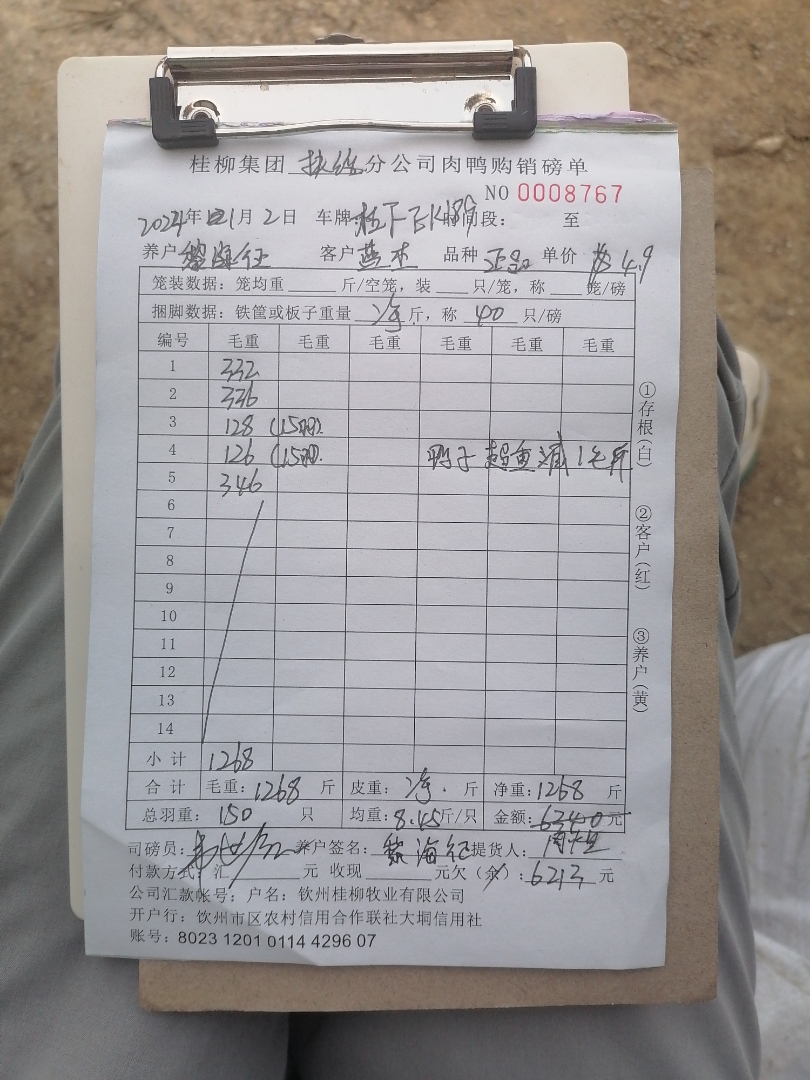 桂柳集团 分公司肉鸭购销磅单
NO 0008767
2024年 1月2日 车牌: 时间段: 至
养户 黎海征 客户 蓝杰 品种 正品 单价 4.9
笼装数据:笼均重 斤/空笼,装 只/笼,称 笼/磅
捆脚数据:铁筐或板子重量 净 斤,称 40 只/磅
编号 毛重 毛重 毛重 毛重 毛重 毛重
1 332
2 336
3 128 (15羽)
4 126 (15羽) 鸭子 减1毛/斤
5 346
6
7
8
9
10
11
12
13
14
小计 1268
合计 毛重:1268 斤 皮重:净 斤 净重:1268 斤
总羽重:150 只 均重:8.45斤/只 金额: 元
司磅员: 养户签名:黎海征 提货人:
付款方式:汇 元 收现 元欠(余):6213 元
公司汇款帐号:户名:钦州桂柳牧业有限公司
开户行:钦州市区农村信用合作联社大垌信用社
账号:8023 1201 0114 4296 07
①存根(白)
②客户(红)
③养户(黄)